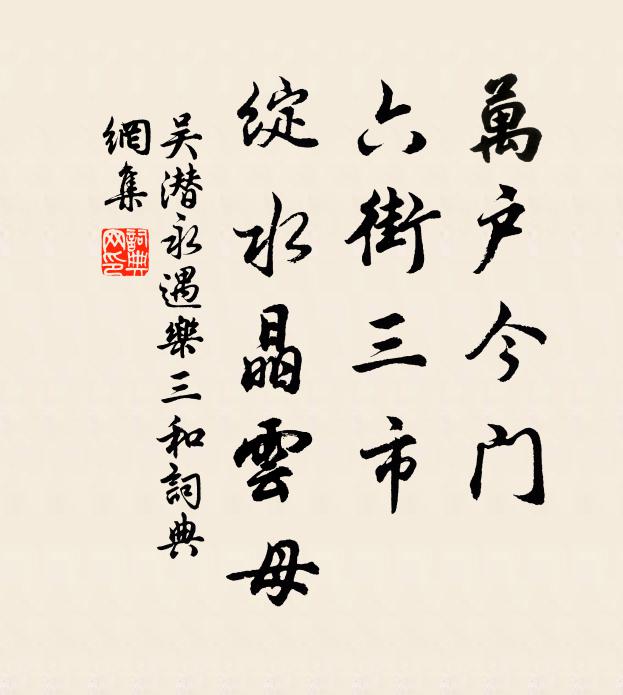 萬户今门
六街三市
綻水晶雲母
吴潜永遇樂三和詞典
網集
詞典网印